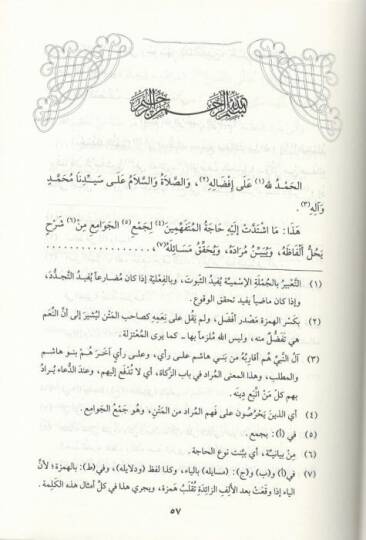 بسم الله الرحمن الرحيم
الحَمْدُ لله(١) عَلَى إِفْضَالِهِ(٢)، وَالصَّلاةُ وَالسَّلامُ عَلَى سَيِّدِنَا مُحَمَّدٍ
وَآلِهِ(٣).
هَذَا: مَا اشْتَدَّتْ إِلَيْهِ حَاجَةُ المُتَفَهِّمِينَ(٤) لِجَمْعِ(٥) الجَوَامِعِ مِنْ(٦) شَرْحٍ
يَحُلُّ أَلْفَاظَهُ، وَيُبَيِّنُ مُرَادَهُ، وَيُحَقِّقُ مَسَائِلَهُ(٧)......................
(١) التَّعْبِيرُ بالجُمْلَةِ الاِسْمِيَّةِ يُفيدُ الثبوتَ، وبالفِعْليَّةِ إذا كان مُضارعاً يُفيدُ التَّجدُّدَ،
وإذا كان ماضياً يفيد تحقق الوقوع.
(٢) بكَسْرِ الهمزة مَصْدر أفْضَل، ولم يَقُل على نِعَمِهِ كصاحب المَتْن ليُشيرَ إلى أنَّ النِّعَم
هي تَفَضُّلٌ منه، وليس الله مُلزماً بها ـ كما يرى المُعْتزلة.
(٣) آلُ النَّبيِّ هُم أقاربُهُ من بَنِي هاشم على رأي، وعلى رأيٍ آخَرَ هُمْ بنو هاشم
والمطلب، وهذا المعنى المُراد في باب الزَّكاة، أي لا تُدْفَع إليهم، وعند الدُّعاء يُرادُ
بهم كلّ مَنْ اتَّبَع دِينَه.
(٤) أي الذينَ يَحْرِصُون على فَهم المُراد من المَتْنِ، وهُو جَمْعُ الجَوامع.
(٥) في (أ): بجمع.
(٦) مِنْ بيانيَّة، أي بيَّنت نوعَ الحاجة.
(٧) في(أ) و(ب) و(ج): (مسايله) بالياء، وكذا لفظ (ودلايله)، وفي(ط): بالهمزة؛ لأنَّ
الياء إذا وَقَعَتْ بعد الأَلِفِ الزَّائِدَةِ تُقْلَبُ هَمزة، ويجري هذا في كلّ أمثال هذه الكَلِمة.
٥٧